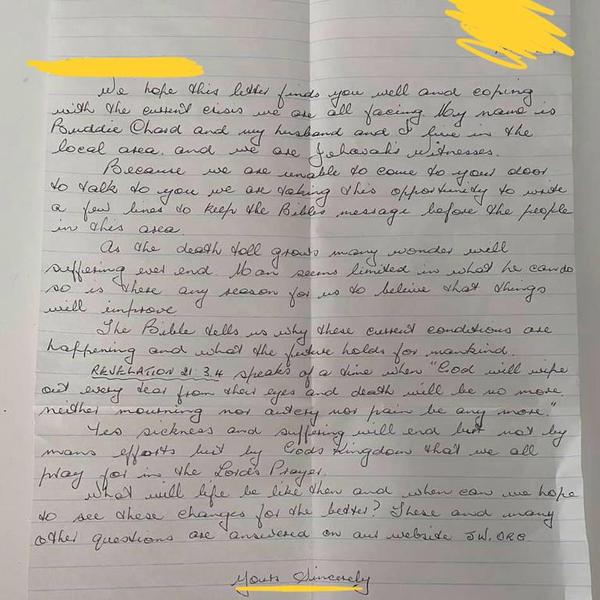 We hope this letter finds you well and coping
with the current crisis we are all facing. My name is
Buddie Chard and my husband and I live in the
local area. and we are Jehovah's Witnesses.
Because we are unable to come to your door
to talk to you we are taking this opportunity to write
a few lines to keep the Bibles message before the people
in this area.
As the death toll grows many wonder will
suffering ever end. Man seems limited in what he can do
so is there any reason for us to beleive that things
will improve
The Bible tells us why these current conditions are
happening and what the future holds for mankind.
REVELATION 21:3.4 speaks of a time when "God will wipe
out every tear from their eyes and death will be no more
neither mourning nor outcry nor pain be any more."
Yes sickness and suffering will end but not by
mans efforts but by Gods Kingdom that we all
pray for in the Lords Prayer.
What will life be like then and when can we hope
to see these changes for the better? These and many
other questions are answered on our website JW.ORG
Yours Sincerely